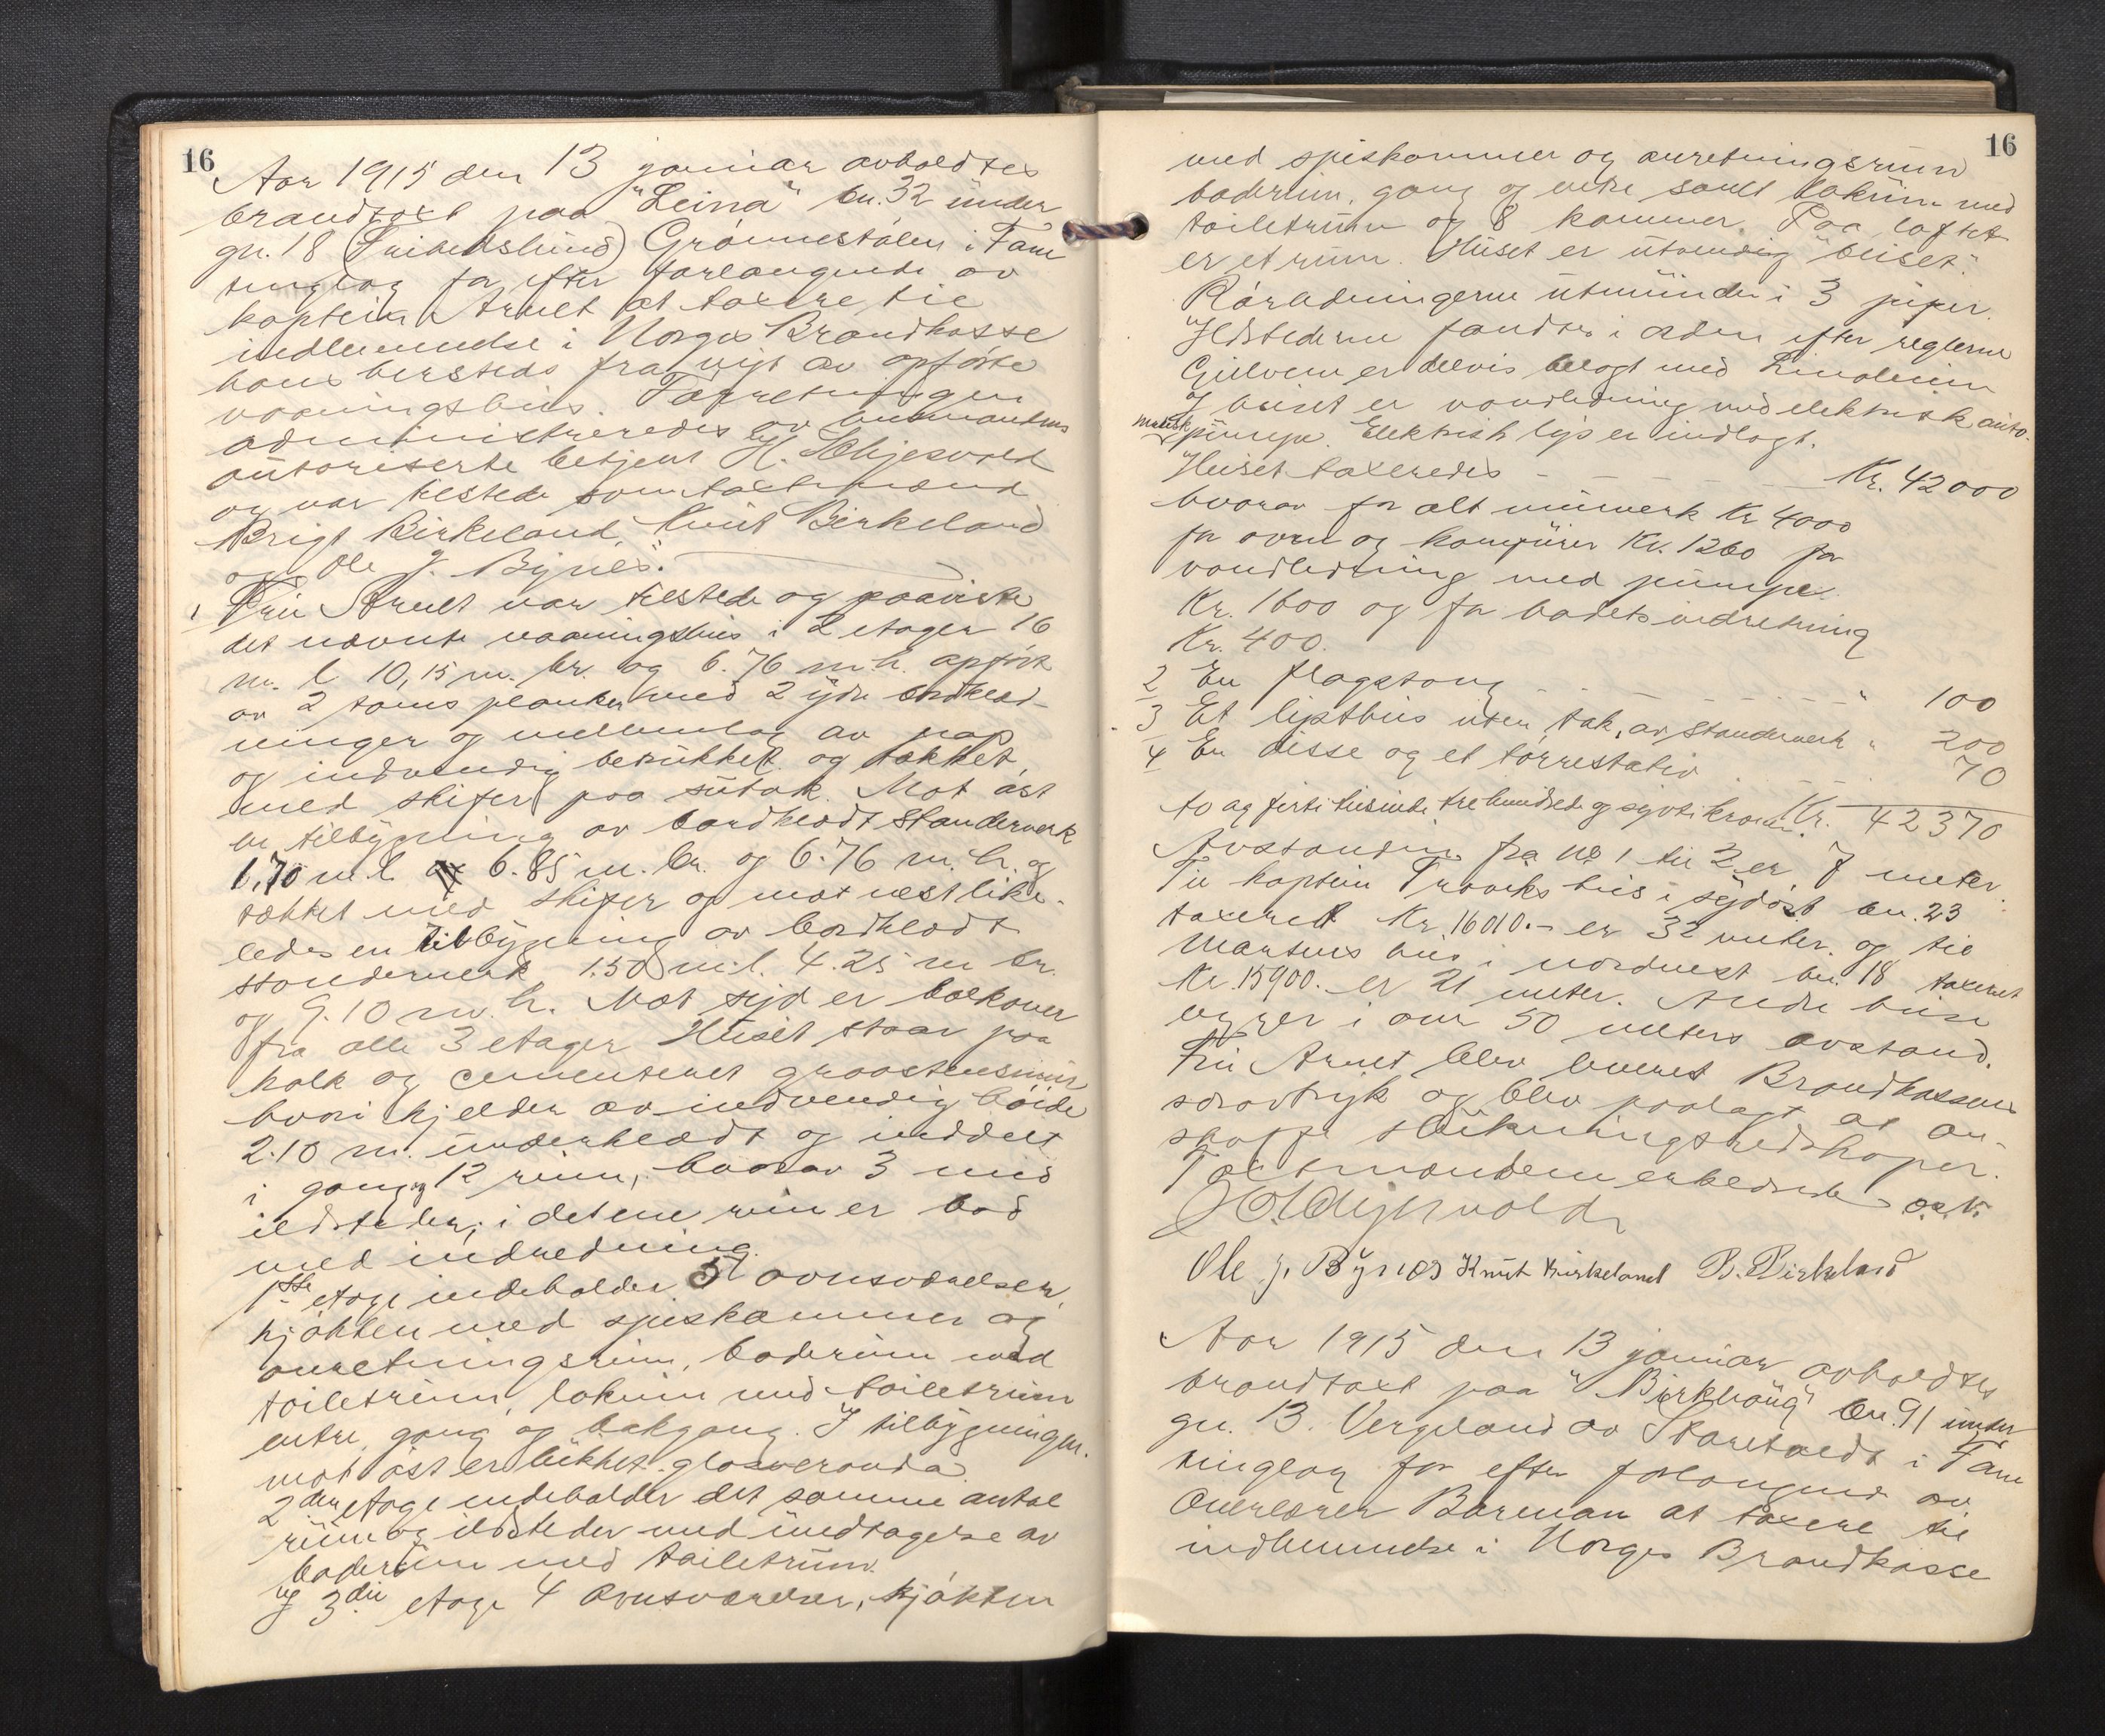 16
Aar 1915 den 13 januar avholdtes
brandtaxt paa "Leina" bn. 32 under
gn. 18 (Fribedslund) Grönnestölen i Fane
tinglag for efter forlangende av
kaptein Arnet at taxere til
indlemmelse i Norges Brandkasse
hans hersteds fra nyt av opförte
vaaningshus. Forretningen
administreredes av lensmandens
autoriserte betjent H. Skjesvold
og var tilstede som taxtmænd
Brigt Birkeland, Knut Birkeland
og Ole J. Bynes.
1 Fru Arnet var tilstede og paaviste
det nævnte vaaningshus i 2 etager 16
m. l 10,15 m. br. og 6.76 m h. opfört
av 2 toms planker med 2 ydre bordklæd-
ninger og mellemlag av pap
og indvendig betrukket og tækket
med skifer paa sutak. Mot öst
en tilbygning av bordklædt standerverk
1,70 m. l 6.85 m. br. og 6.76 m. h. og
tækket med skifer og mot vest like-
ledes en tilbygning av bordklædt
standerverk 1.50 m. l. 4.25 m br.
og 9.10 m. h. Mot syd er balkoner
fra alle 3 etager Huset staar paa
kalk og cementeret graastensmur
hvori kjelder av indvendig höide
2.10 m. underklædt og inddelt
i gang og 12 rum, hvorav 3 med
ildsteder, i det ene rum er bad
med indredning.
1ste etage indeholder 5 ovnsværelser,
kjökken med spiskammer og
anretningsrum, baderum med
toiletrum, lokum med toiletrum
entre, gang og bakgang. I tilbygningen
mot öst er lukket glasveranda.
2den etage indeholder det samme antal
rum og ildsteder med undtagelse av
baderum med toiletrum.
og 3die etage 4 ovnsværelser, kjökken
16
med spiskammer og anretningsrum
baderum, gang og entre samt lokum med
toiletrum og 8 kammer. Paa loftet
er et rum. Huset er utvendig beiset.
Rörledningerne utmunder i 3 piper.
Ildstederne fandtes i orden efter reglerne
Gulvene er delvis belagt med Linoleum
og huset er vandledning med elektrisk auto-
matisk pumpe. Elektrisk lys er indlagt.
Huset taxeredes - - - - Kr. 42000
hvorav for alt murverk Kr 4000
for ovne og komfurer Kr. 1260 for
vandledning med pumpe
Kr. 1600 og for badets indretning
Kr. 400.
2 En flagstang - - - - " 100
3 Et lysthus uten tak, av standerverk " 200
4 En disse og et törrestativ - - - 70
to og firti tusinde trehundrede og sytti kroner. Kr. 42370
Avstanden fra No 1 til 2 er 7 meter.
Til kaptein Traviks hus i sydöst bn. 23
taxeret Kr. 16010.- er 32 meter og til
Martens hus i nordvest bn. 18 taxeret
Kr. 15900. er 21 meter. Andre huse
ligger i over 50 meters avstand.
Fru Arnet blev leveret Brandkassens
særtryk og blev paalagt at an-
skaffe slukningsredskaper.
Taxtmændene erklærede o.s.v.
H. Skjesvold
Ole J. Bynes Knut Birkeland B. Birkeland
Aar 1915 den 13 januar avholdtes
brandtaxt paa "Birkhaug" bn. 91 under
gn. 13. Vergeland av i Fane
tinglag for efter forlangende av
Overlærer Barman at taxere til
indlemmelse i Norges Brandkasse